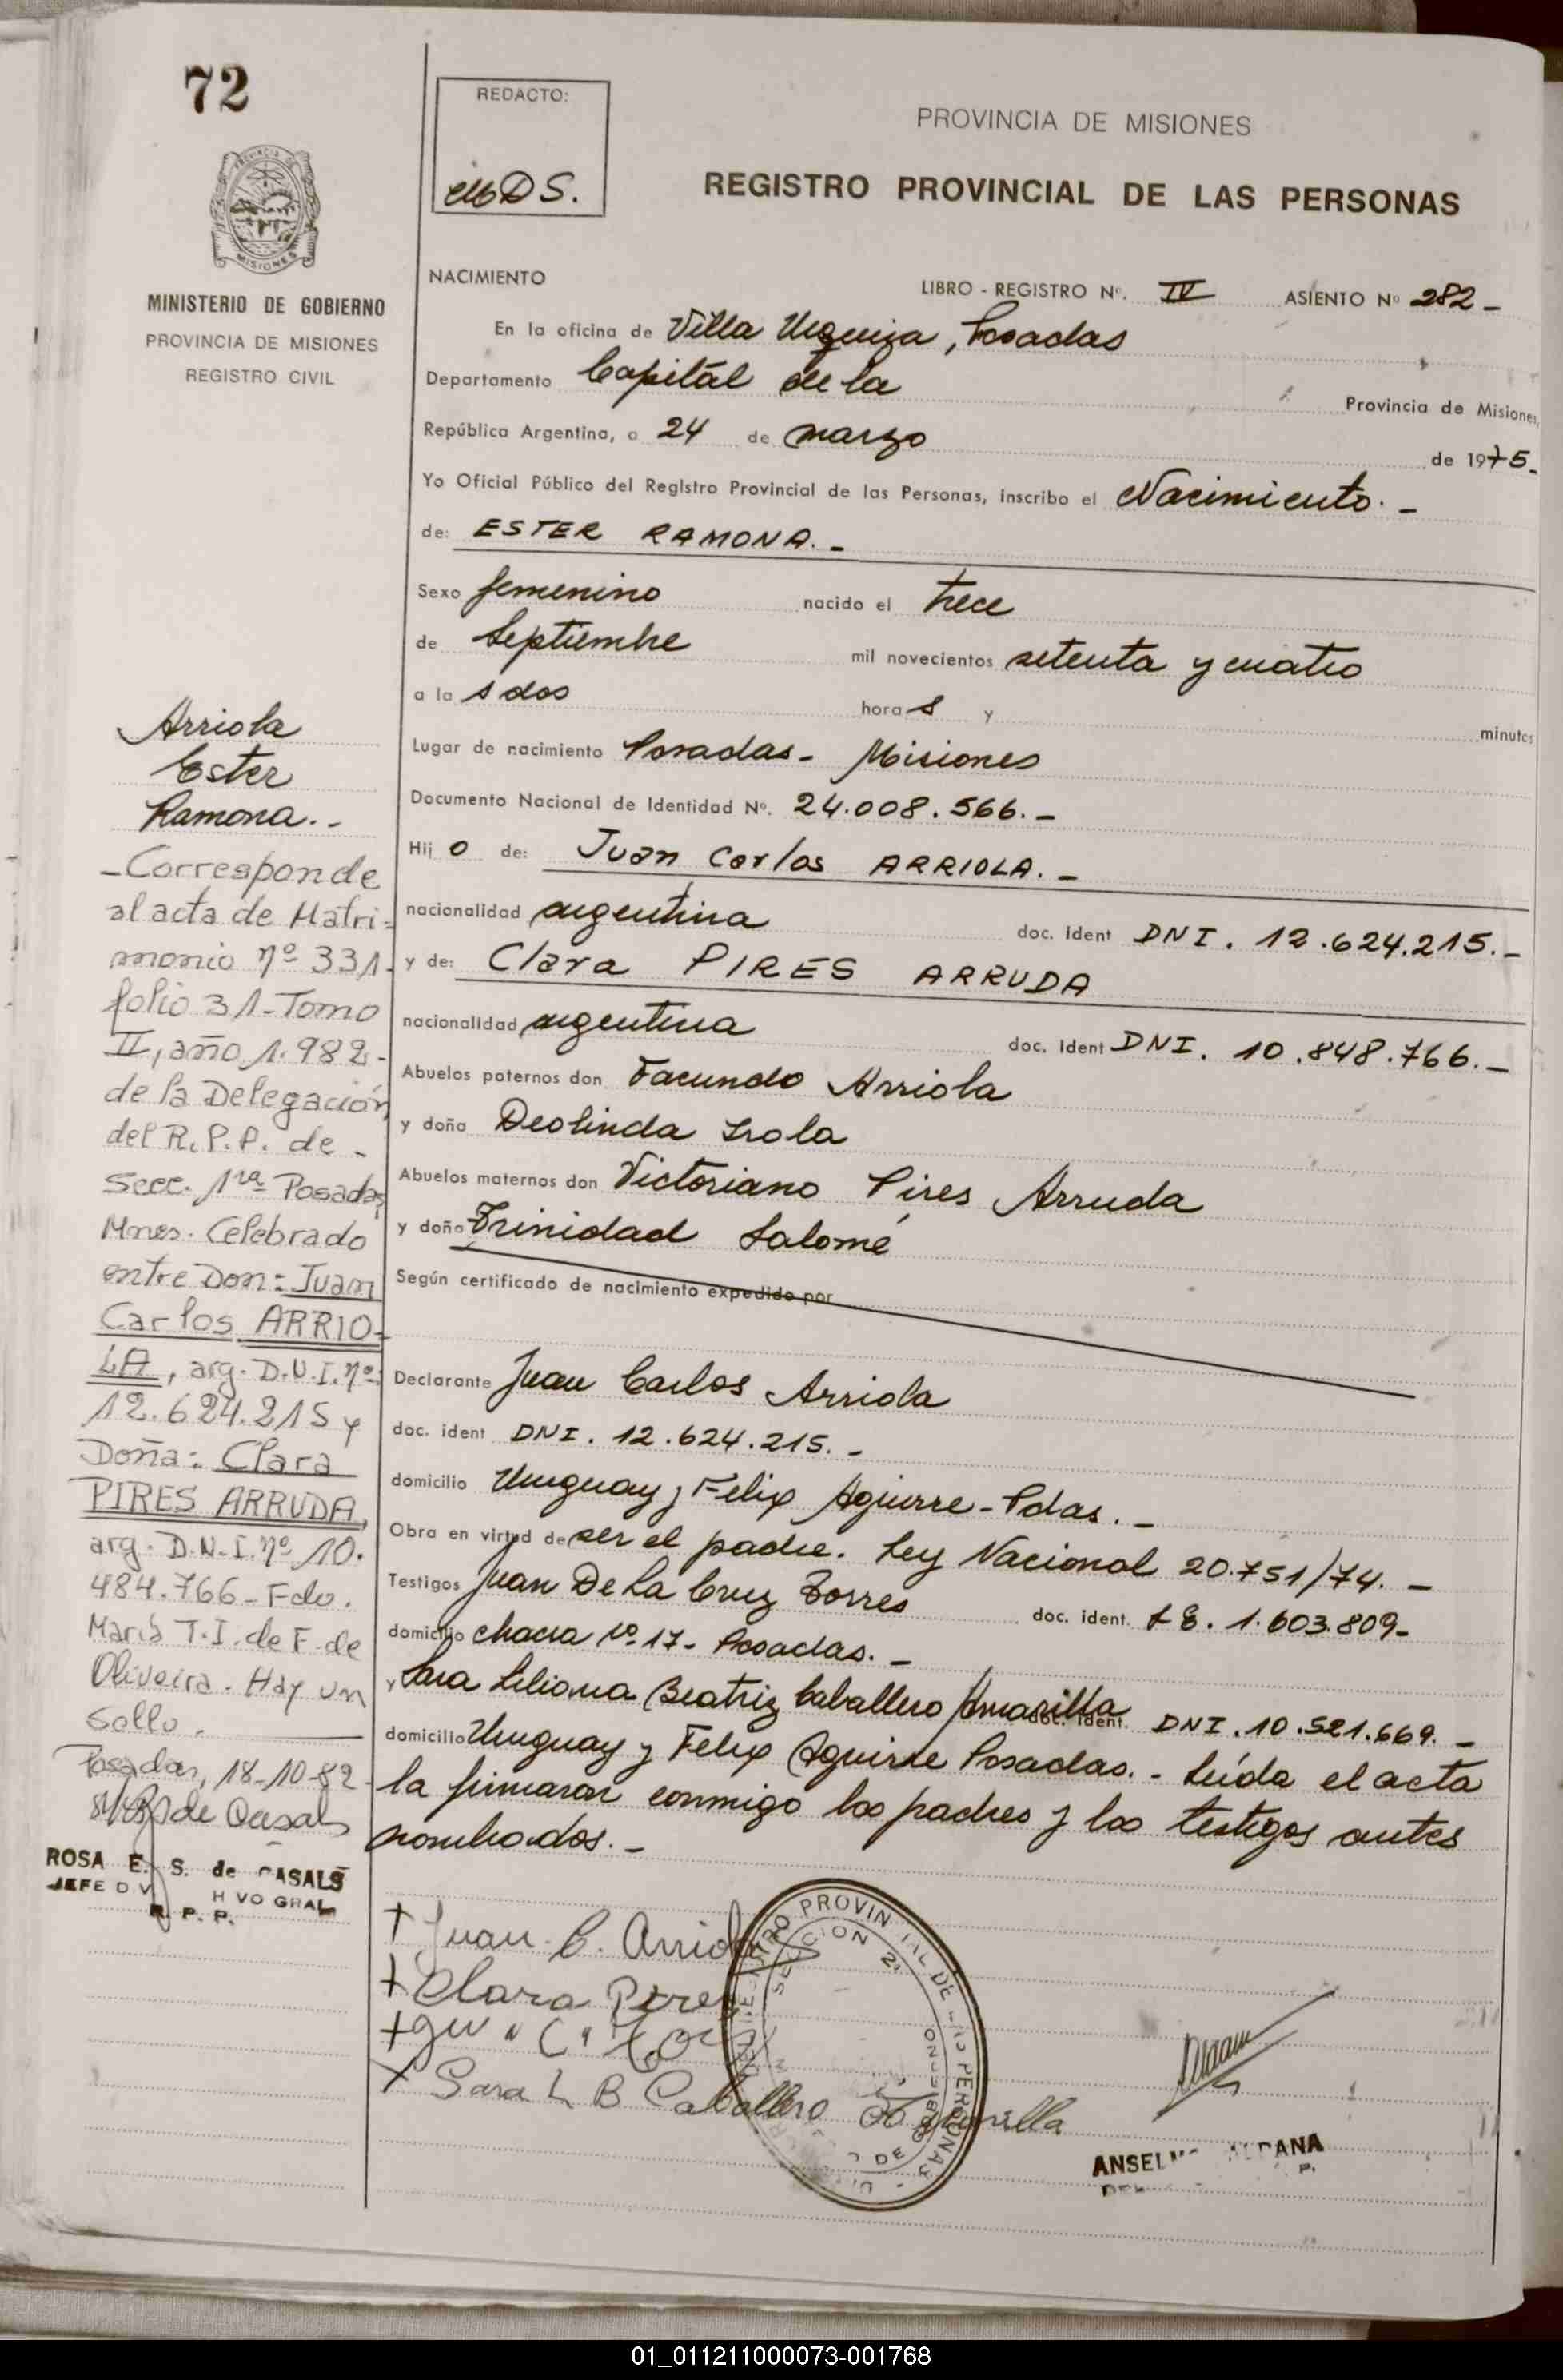 72
MISIONES
MINISTERIO DE GOBIERNO
PROVINCIA DE MISIONES
REGISTRO CIVIL
Arriola
Ester
Ramona.-
-Corresponde
al acta de Matri-
monio nº 331-
folio 31-Tomo
II, año 1.982-
de la Delegación
del R.P.P. de -
Secc. 1ra Posadas,
Mnes. Celebrado
entre Don: Juan
Carlos ARRIO-
LA, arg. D.N.I. nº:
12.624.215 y
Doña: Clara
PIRES ARRUDA,
arg. D.N.I. nº 10.
484.766-Fdo.
María T.I. de F. de
Oliveira. Hay un
sello.
Posadas, 18-10-82-
de Casals
ROSA E. S. de CASALS
JEFE DIV. H VO GRAL
R. P. P.
REDACTO:
DS.
PROVINCIA DE MISIONES
REGISTRO PROVINCIAL DE LAS PERSONAS
NACIMIENTO LIBRO - REGISTRO Nº. IV ASIENTO Nº 282-
En la oficina de Villa Urquiza, Posadas
Departamento Capital de la Provincia de Misiones,
República Argentina, a 24 de marzo de 1975-
Yo Oficial Público del Registro Provincial de las Personas, inscribo el Nacimiento.-
de: ESTER RAMONA.-
Sexo femenino nacido el trece
de Septiembre mil novecientos setenta y cuatro
a las dos horas y minutos
Lugar de nacimiento Posadas- Misiones
Documento Nacional de Identidad Nº. 24.008.566.-
Hijo de: Juan Carlos ARRIOLA.-
nacionalidad argentina doc. ident DNI. 12.624.215.-
y de: Clara PIRES ARRUDA
nacionalidad argentina doc. Ident DNI. 10.848.766.-
Abuelos paternos don Facundo Arriola
y doña Deolinda Irola
Abuelos maternos don Victoriano Pires Arruda
y doña Trinidad Salomé
Según certificado de nacimiento expedido por
Declarante Juan Carlos Arriola
doc. ident DNI. 12.624.215.-
domicilio Uruguay y Felix Aguirre-Pdas.-
Obra en virtud de ser el padre. Ley Nacional 20.751/74.-
Testigos Juan De La Cruz Torres doc. ident. LE. 1.603.809-
domicilio chacra Nº 17- Posadas.-
y Sara Liliana Beatriz Caballero Amarilla doc. ident. DNI. 10.521.669.-
domicilio Uruguay y Felix Aguirre Posadas.- Leída el acta
la firmaron conmigo los padres y los testigos antes
nombrados.-
+ Juan C. Arriola
+ Clara Pires
+
x Sara L B Caballero Amarilla
REGISTRO PROVINCIAL DE LAS PERSONAS
SECCION 2ª
ANSELMO ALDANA
01_011211000073-001768